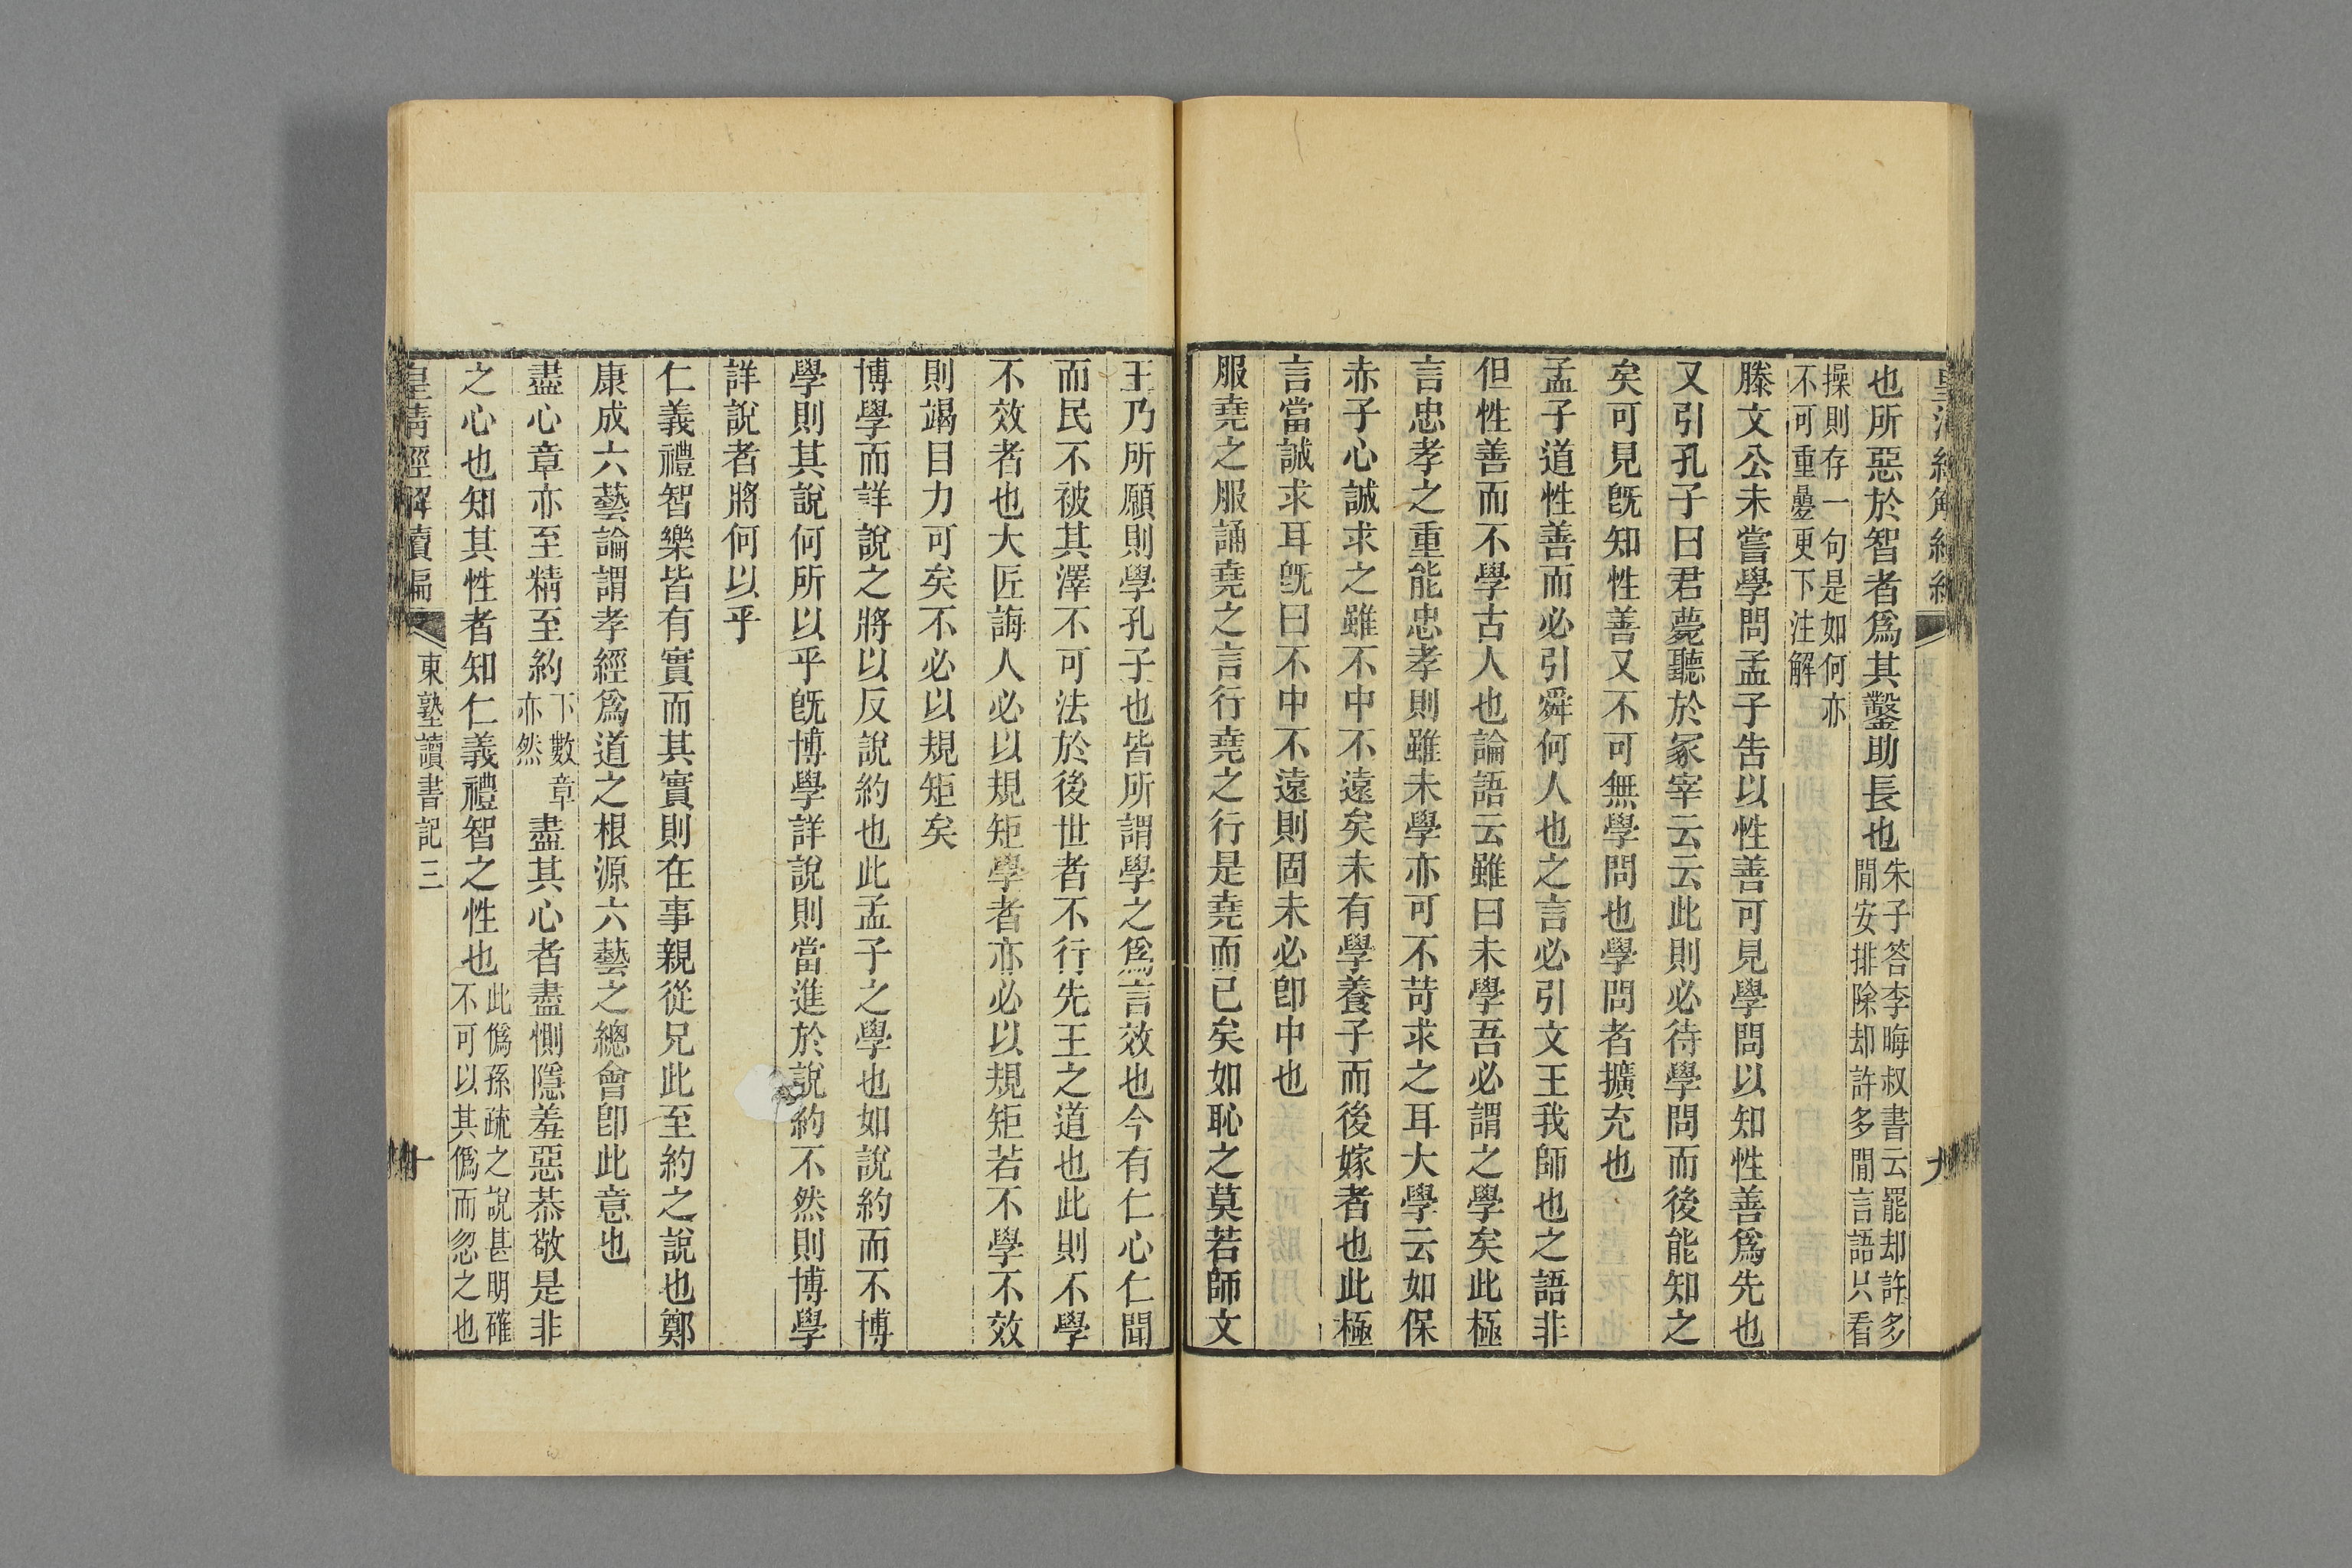 也所惡於智者爲其鑿助長也朱子答李晦叔書云罷却許多
閒安排除却許多閒言語只看
操則存一句是如何亦
不可重疊更下注解
滕文公未嘗學問孟子告以性善可見學問以知性善爲先也
又引孔子曰君薨聽於冢宰云云此則必待學問而後能知之
矣可見旣知性善又不可無學問也學問者擴充也
孟子道性善而必引舜何人也之言必引文王我師也之語非
但性善而不學古人也論語云雖曰未學吾必謂之學矣此極
言忠孝之重能忠孝則雖未學亦可不苛求之耳大學云如保
赤子心誠求之雖不中不遠矣未有學養子而後嫁者也此極
言當誠求耳旣曰不中不遠則固未必卽中也
服堯之服誦堯之言行堯之行是堯而已矣如恥之莫若師文
王乃所願則學孔子也皆所謂學之爲言效也今有仁心仁聞
而民不被其澤不可法於後世者不行先王之道也此則不學
不效者也大匠誨人必以規矩學者亦必以規矩若不學不效
則竭目力可矣不必以規矩矣
博學而詳說之將以反說約也此孟子之學也如說約而不博
學則其說何所以乎旣博學詳說則當進於說約不然則博學
詳說者將何以乎
仁義禮智樂皆有實而其實則在事親從兄此至約之說也鄭
康成六藝論謂孝經爲道之根源六藝之總會卽此意也
盡心章亦至精至約下數章
亦然盡其心者盡惻隱羞惡恭敬是非
之心也知其性者知仁義禮智之性也此僞孫疏之說甚明確
不可以其僞而忽之也
皇淸經解續編 東塾讀書記三 十